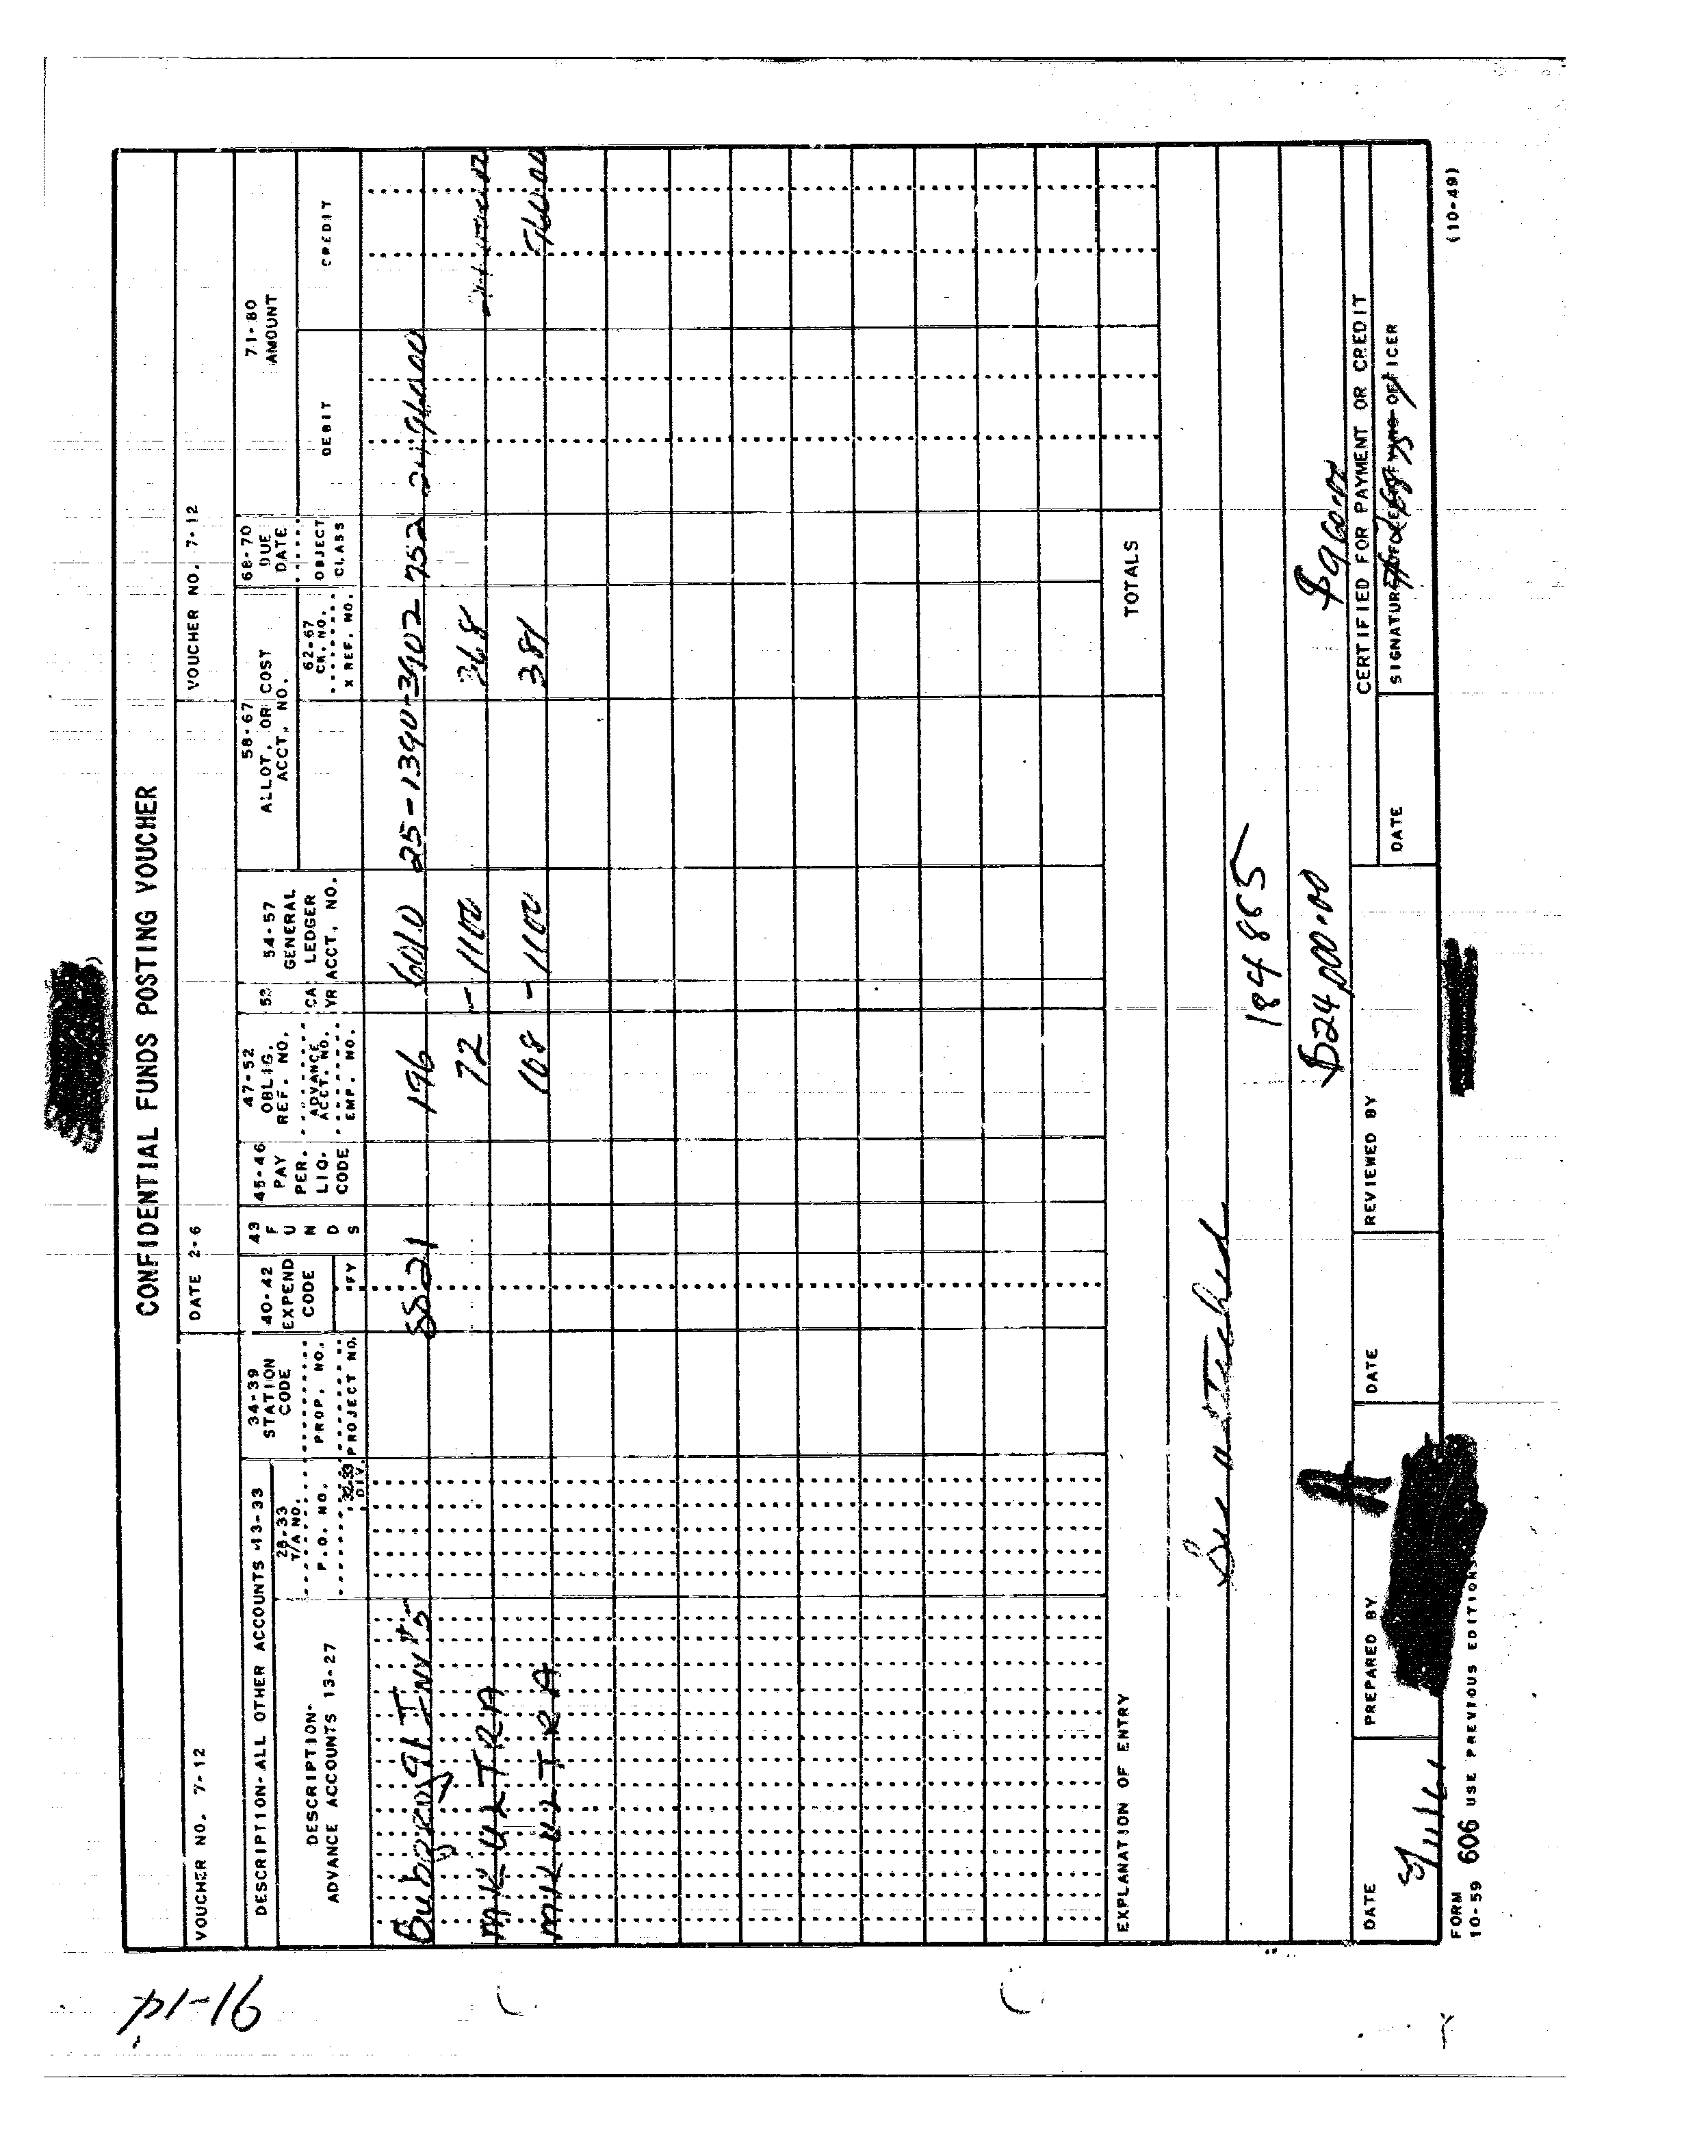 CONFIDENTIAL FUNDS POSTING VOUCHER
VOUCHER NO. 7-12
DATE 2-6
VOUCHER NO. 7-12
DESCRIPTION-ALL OTHER ACCOUNTS 13-33
DESCRIPTION-
ADVANCE ACCOUNTS 13-27
28-33
T/A NO.
P.O. NO.
32-33
DIV.
34-39
STATION
CODE
PROP. NO.
PROJECT NO.
40-42
EXPEND
CODE
FY
43
F
U
N
D
S
45-46
PAY
PER.
LIQ.
CODE
47-52
OBLIG.
REF. NO.
ADVANCE
ACCT. NO.
EMP. NO.
53
CA
YR
54-57
GENERAL
LEDGER
ACCT. NO.
58-67
ALLOT. OR COST
ACCT. NO.
62-67
CK. NO.
X REF. NO.
68-70
DUE
DATE
OBJECT
CLASS
71-80
AMOUNT
DEBIT
CREDIT
196 6010 25-1390-3902 752
MKULTRA 72 - 1100 368
MKULTRA 108 - 1100 381 960.00
TOTALS
EXPLANATION OF ENTRY
See attached
184865
$24,000.00 $960.00
DATE
PREPARED BY
DATE
REVIEWED BY
CERTIFIED FOR PAYMENT OR CREDIT
DATE
SIGNATURE OF CERTIFYING OFFICER
FORM
10-59 606 USE PREVIOUS EDITIONS
(10-49)
91-14